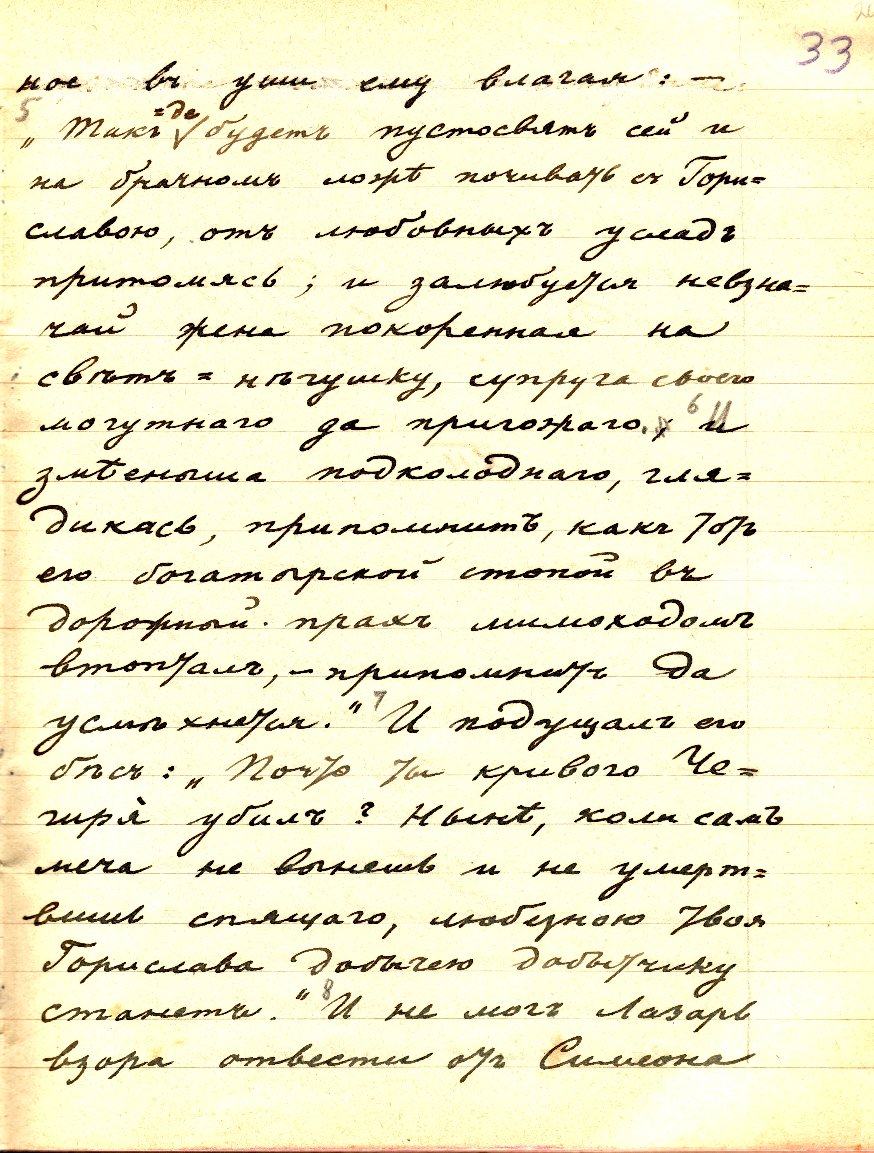 33
ное въ уши ему влагая: —
5 „Такъ=де будетъ пустосвятъ сей и
на брачномъ ложѣ почивать съ Гори=
славою, отъ любовныхъ усладъ
притомясь; и залюбуется невзна=
чай жена покоренная на
свѣтъ=нѣгушку, супруга своего
могутнаго да пригожаго. 6 И
змѣеныша подколоднаго, гля=
дикась, припомнитъ, какъ тотъ
его богатырской стопой въ
дорожный прахъ мимоходомъ
втопталъ, — припомнитъ да
усмѣхнется.“ 7 И подущалъ его
бѣсъ: „Почто ты кривого Че=
гиря̀ убилъ? Нынѣ, коли самъ
меча не вынешь и не умерт=
вишь спящаго, любезною твоя
Горислава добычею добытчику
станетъ.“ 8 И не могъ Лазарь
взора отвести отъ Симеона